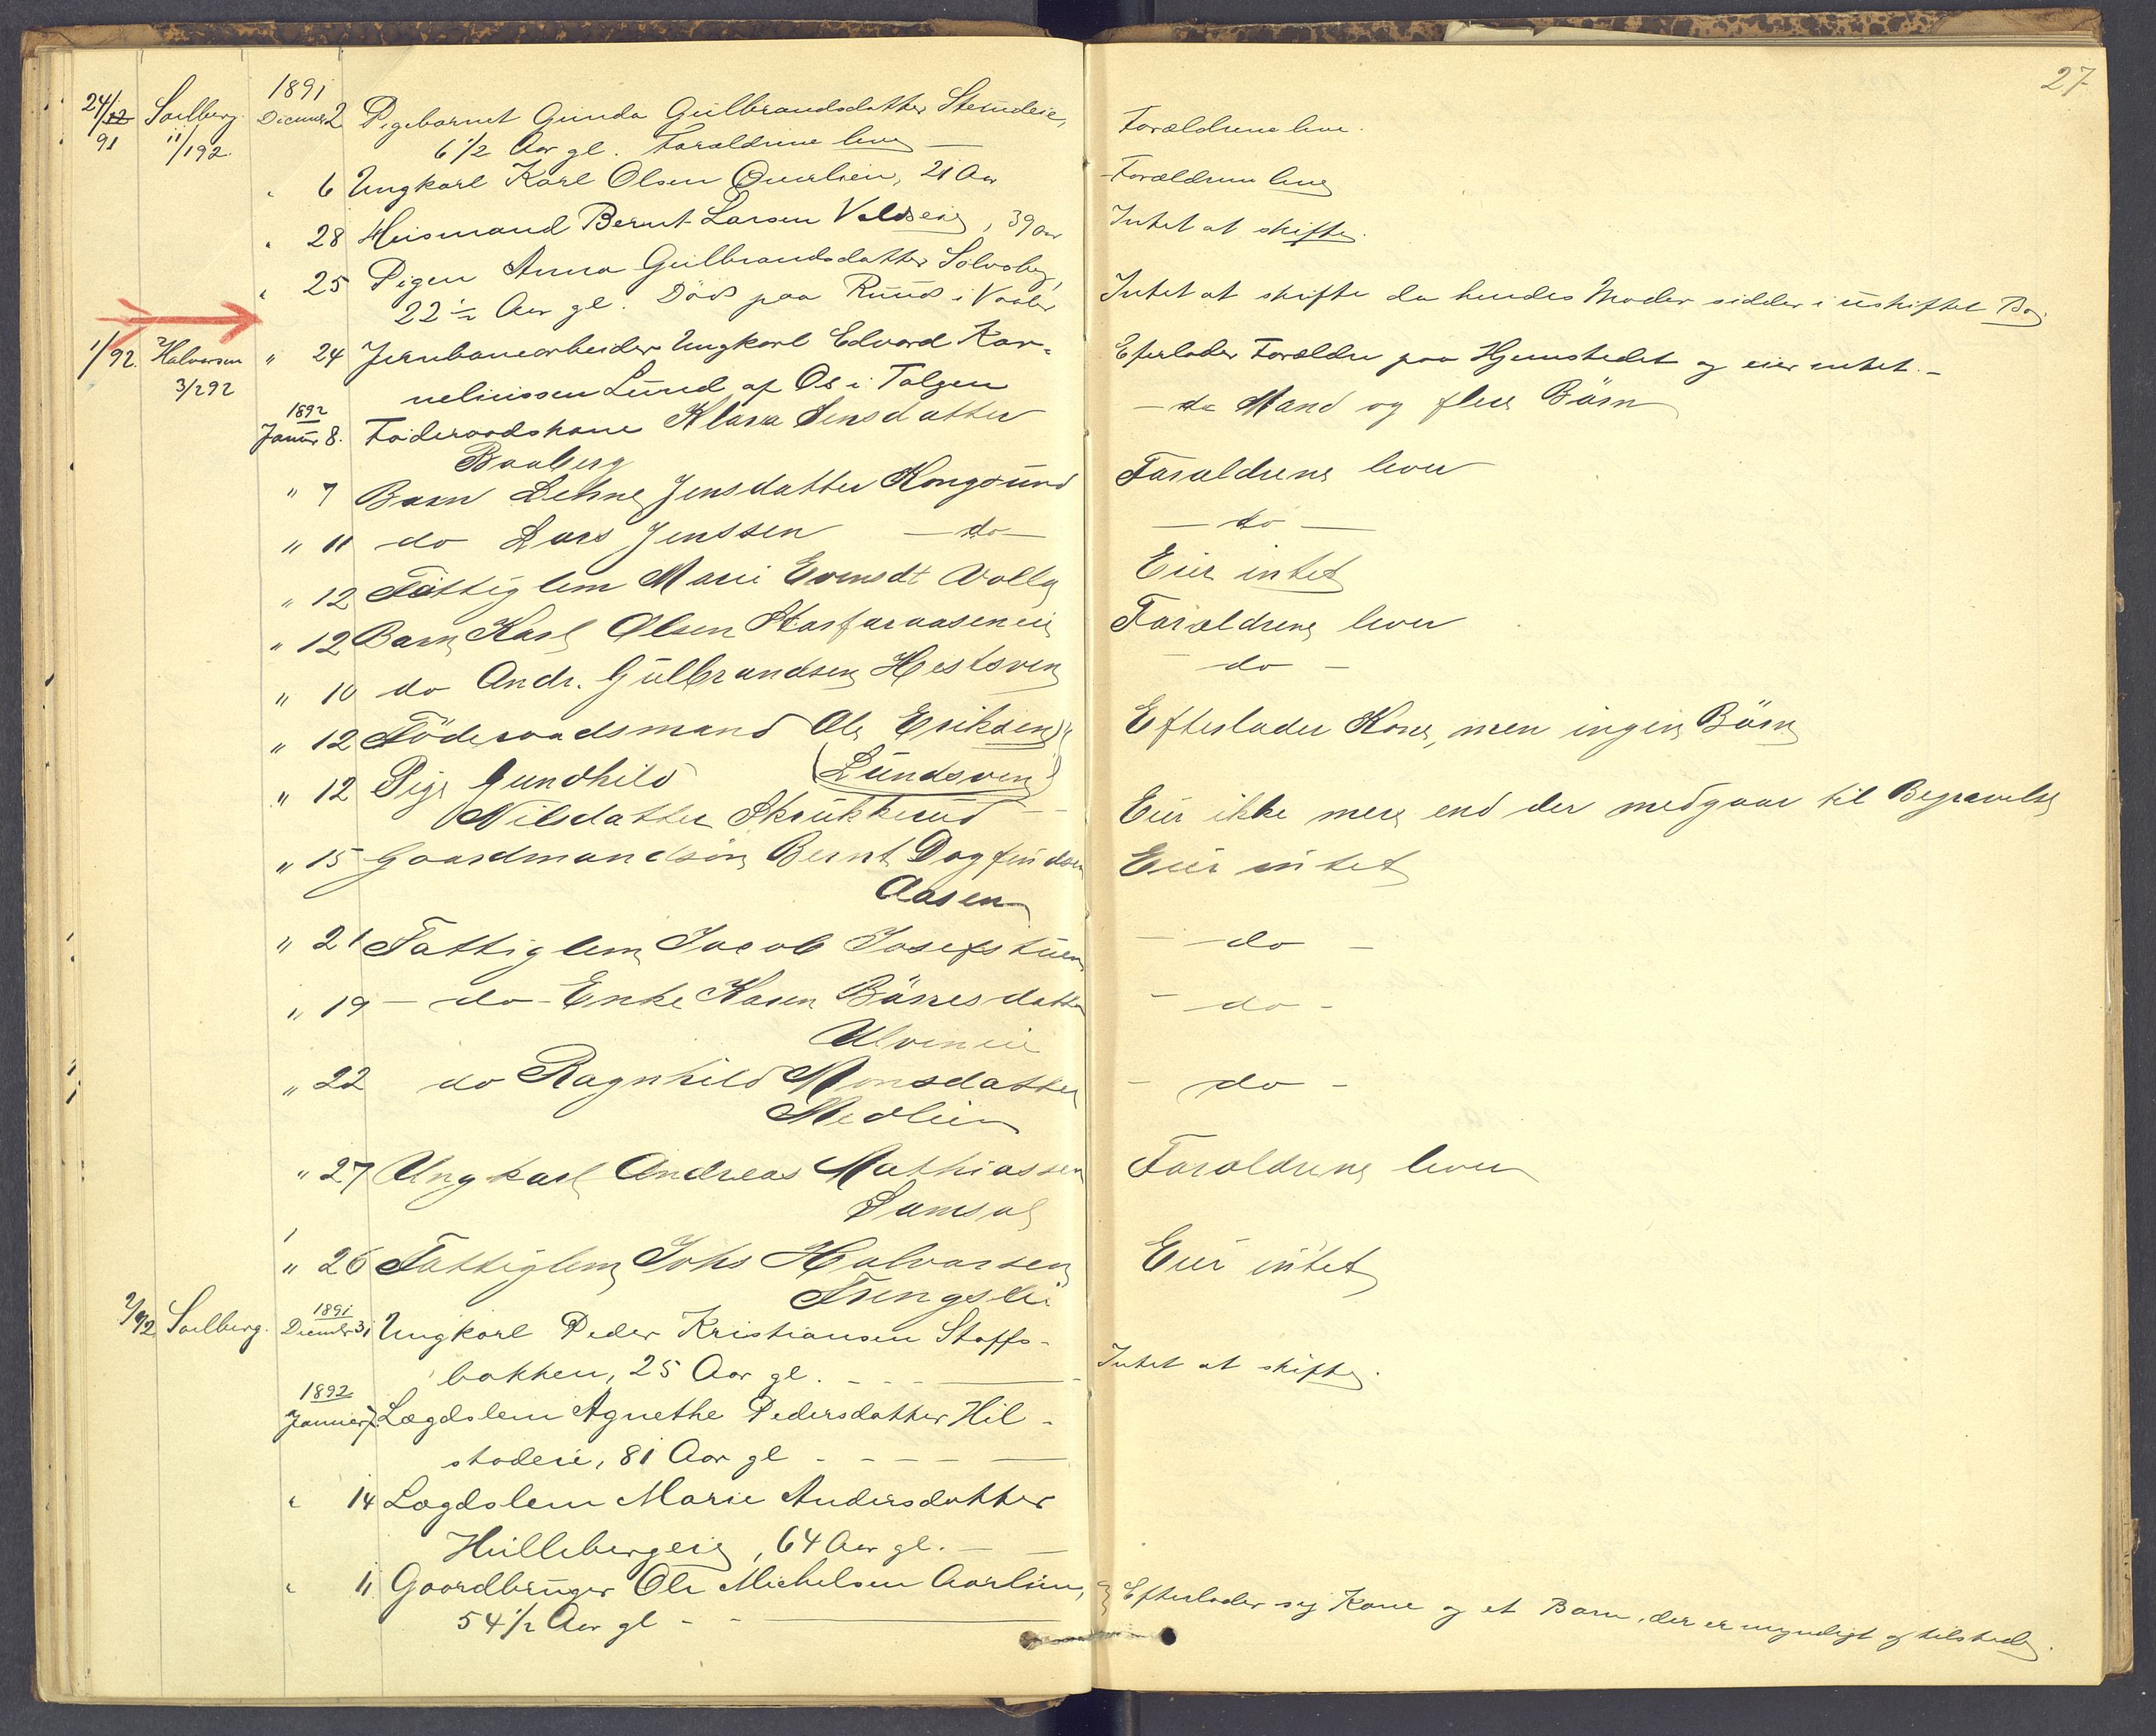 27
1891
24/12 91 Solberg 11/1 92. December 2 Pigebarnet Gunda Gulbrandsdatter Stemdeie, Forældrene leve.
6 1/2 Aar gl. Forældrene leve —
" 6 Ungkarl Karl Olsen Querlien, 21 Aar Forældrene leve
" 28 Husmand Bernt Larsen Valdseie, 39 Aar Intet at skifte.
" 25 Pigen Anna Gulbrandsdatter Solvsberg,
22 1/2 Aar gl. Död paa Ruud i Vaaler Intet at skifte da hendes Moder sidder i uskiftet Bo.
1/92. Halvorsen 3/2 92 " 24 Jernbanearbeider Ungkarl Edvard Kor- Efterlader Forældre paa Hjemstedet og eier intet. -
neliussen Lund af Os i Tolgen
1892
Januar 8. Föderaadskone Klara Jensdatter — do Mand og flere Börn
Baaberg
" 7 Barn Lehne Jensdatter Kongsund Forældrene lever
" 11 do Lars Jenssen — do — — do —
" 12 Fattiglem Marie Evensdt Volla Eier intet
" 12 Barn Karl Olsen Storfuruaseneie Forældrene lever
" 10 do Andr. Gulbrandsen Hestsveen - do -
" 12 Föderaadsmand Ole Eriksen Efterlader Kone, men ingen Börn
(Lundsveen)
" 12 Pige Gundhild
Nilsdatter Skrukkerud Eier ikke mere end der medgaar til Begravelse
" 15 Gaardmandsön Bernt Dagfindsen Eier intet
Aasen
" 21 Fattiglem Jacob Josefstuen - do -
" 19 - do - Enke Karen Börresdatter - do -
Ulveneie
" 22 do Ragnhild Monsdatter - do -
Medlien
" 27 Ungkarl Andreas Mathiassen Forældrene lever
Samsal
" 26 Fattiglem Johs Halvorsen Eier intet
Trengslei
2/92 Solberg. 1891
December 31 Ungkarl Peder Kristiansen Staffs-
bakken, 25 Aar gl. - - - Intet at skifte.
1892
Januar 7. Lægdslem Agnethe Pedersdatter Hil-
stadeie, 81 Aar gl - - - -
" 14 Lægdslem Marie Andersdatter
Hullebergeie, 64 Aar gl. - -
" 11 Gaardbruger Ole Michelsen Aarlien, } Efterlader sig Kone og et Barn, der er myndigt og tilstede.
54 1/2 Aar gl - -